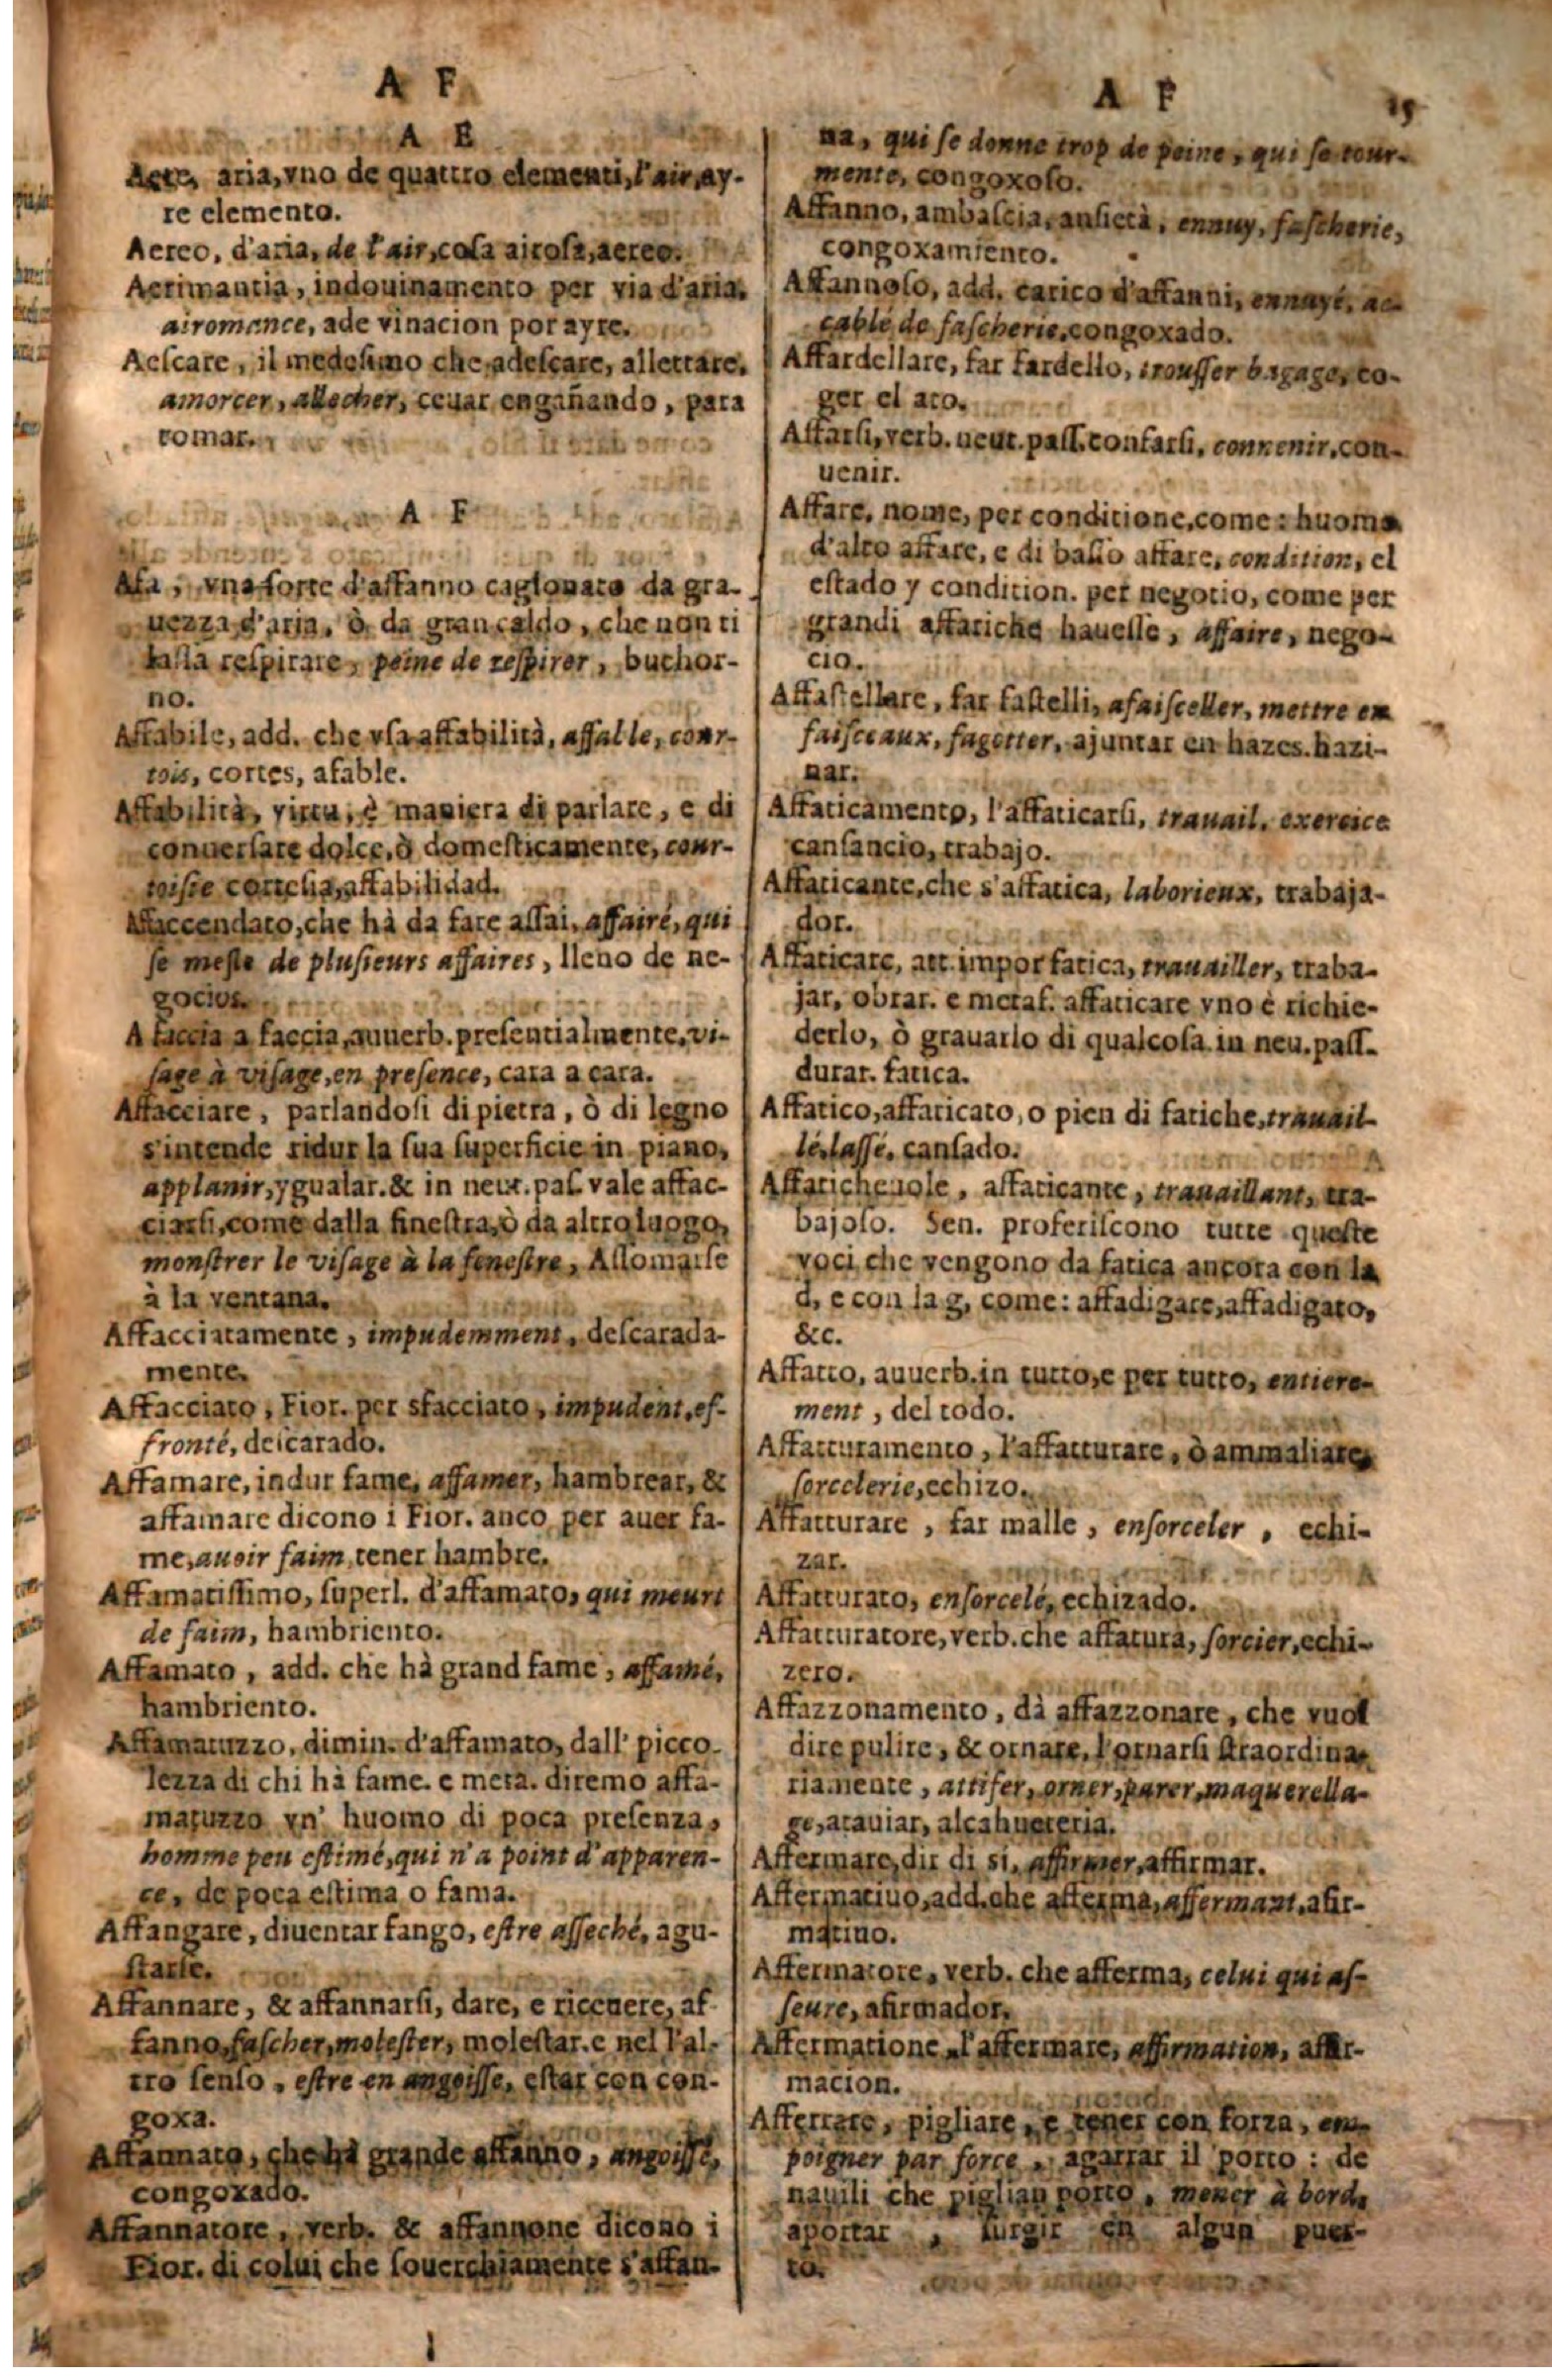 A F
A E
Aere, aria, vno de quattro elementi, l'air, ay-
re elemento.
Aereo, d'aria, de l'air, cosa airosa, aereo.
Aerimantia, indouinamento per via d'aria,
airomance, ade vinacion por ayre.
Aescare, il medesimo che adescare, allettare,
amorcer, allecher, ceuar engañando, para
tomar.
A F
Afa, vna sorte d'affanno cagionato da gra-
uezza d'aria, ò da gran caldo, che non ti
lassa respirare, peine de respirer, buchor-
no.
Affabile, add. che vsa affabilità, affalle, cour-
tois, cortes, afable.
Affabilità, virtu, è maniera di parlare, e di
conuersare dolce, ò domesticamente, cour-
toisie cortesia, affabilidad.
Affaccendato, che hà da fare assai, affairé, qui
se mesle de plusieurs affaires, lleno de ne-
gocios.
A faccia a faccia, auuerb. presentialmente, vi-
sage à visage, en presence, cara a cara.
Affacciare, parlandosi di pietra, ò di legno
s'intende ridur la sua superficie in piano,
applanir, ygualar. & in neut. pas. vale affac-
ciarsi, come dalla finestra, ò da altro luogo,
monstrer le visage à la fenestre, Assomarse
à la ventana.
Affacciatamente, impudemment, descarada-
mente.
Affacciato, Fior. per sfacciato, impudent, ef-
fronté, descarado.
Affamare, indur fame, affamer, hambrear, &
affamare dicono i Fior. anco per auer fa-
me, auoir faim, tener hambre.
Affamatissimo, superl. d'affamato, qui meurt
de faim, hambriento.
Affamato, add. che hà grand fame, affamé,
hambriento.
Affamatuzzo, dimin. d'affamato, dall' picco-
lezza di chi hà fame. e meta. diremo affa-
matuzzo vn' huomo di poca presenza,
homme peu estimé, qui n'a point d'apparen-
ce, de poca estima o fama.
Affangare, diuentar fango, estre asseché, agu-
starse.
Affannare, & affannarsi, dare, e riceuere, af-
fanno, fascher, molester, molestar. e nel l'al-
tro senso, estre en angoisse, estar con con-
goxa.
Affannato, che hà grande affanno, angoissé,
congoxado.
Affannatore, verb. & affannone dicono i
Fior. di colui che souerchiamente s'affan-
A F 15
na, qui se donne trop de peine, qui se tour-
mente, congoxoso.
Affanno, ambascia, ansietà, ennuy, fascherie,
congoxamiento.
Affannoso, add. carico d'affanni, ennuyé, ac-
cablé de fascherie, congoxado.
Affardellare, far fardello, trousser bagage, co-
ger el ato.
Affarsi, verb. neut. pass. confarsi, conuenir, con-
uenir.
Affare, nome, per conditione, come: huomo
d'alto affare, e di basso affare, condition, el
estado y condition. per negotio, come per
grandi affariche hauesse, affaire, nego-
cio.
Affastellare, far fastelli, afaisceller, mettre en
faisceaux, fagotter, ajuntar en hazes. hazi-
nar.
Affaticamento, l'affaticarsi, trauail, exercice
cansancio, trabajo.
Affaticante, che s'affatica, laborieux, trabaja-
dor.
Affaticare, att. impor fatica, trauailler, traba-
jar, obrar. e metaf. affaticare vno è richie-
derlo, ò grauarlo di qualcosa. in neu. pass.
durar. fatica.
Affatico, affaticato, o pien di fatiche, trauail-
lé, lassé, cansado.
Affaticheuole, affaticante, trauaillant, tra-
bajoso. Sen. proferiscono tutte queste
voci che vengono da fatica ancora con la
d, e con la g, come: affadigare, affadigato,
&c.
Affatto, auuerb. in tutto, e per tutto, entiere-
ment, del todo.
Affatturamento, l'affatturare, ò ammaliare,
sorcelerie, echizo.
Affatturare, far malle, ensorceler, echi-
zar.
Affatturato, ensorcelé, echizado.
Affatturatore, verb. che affatura, sorcier, echi-
zero.
Affazzonamento, dà affazzonare, che vuol
dire pulire, & ornare, l'ornarsi straordina-
riamente, attifer, orner, parer, maquerella-
ge, atauiar, alcahueteria.
Affermare, dir di si, affirmer, affirmar.
Affermatiuo, add. che afferma, affermant, afir-
matiuo.
Affermatore, verb. che afferma, celui qui as-
seure, afirmador.
Affermatione, l'affermare, affirmation, affir-
macion.
Afferrare, pigliare, e tener con forza, em-
poigner par force, agarrar il porto: de
nauili che piglian porto, mener à bord,
aportar, surgir en algun puer-
to.